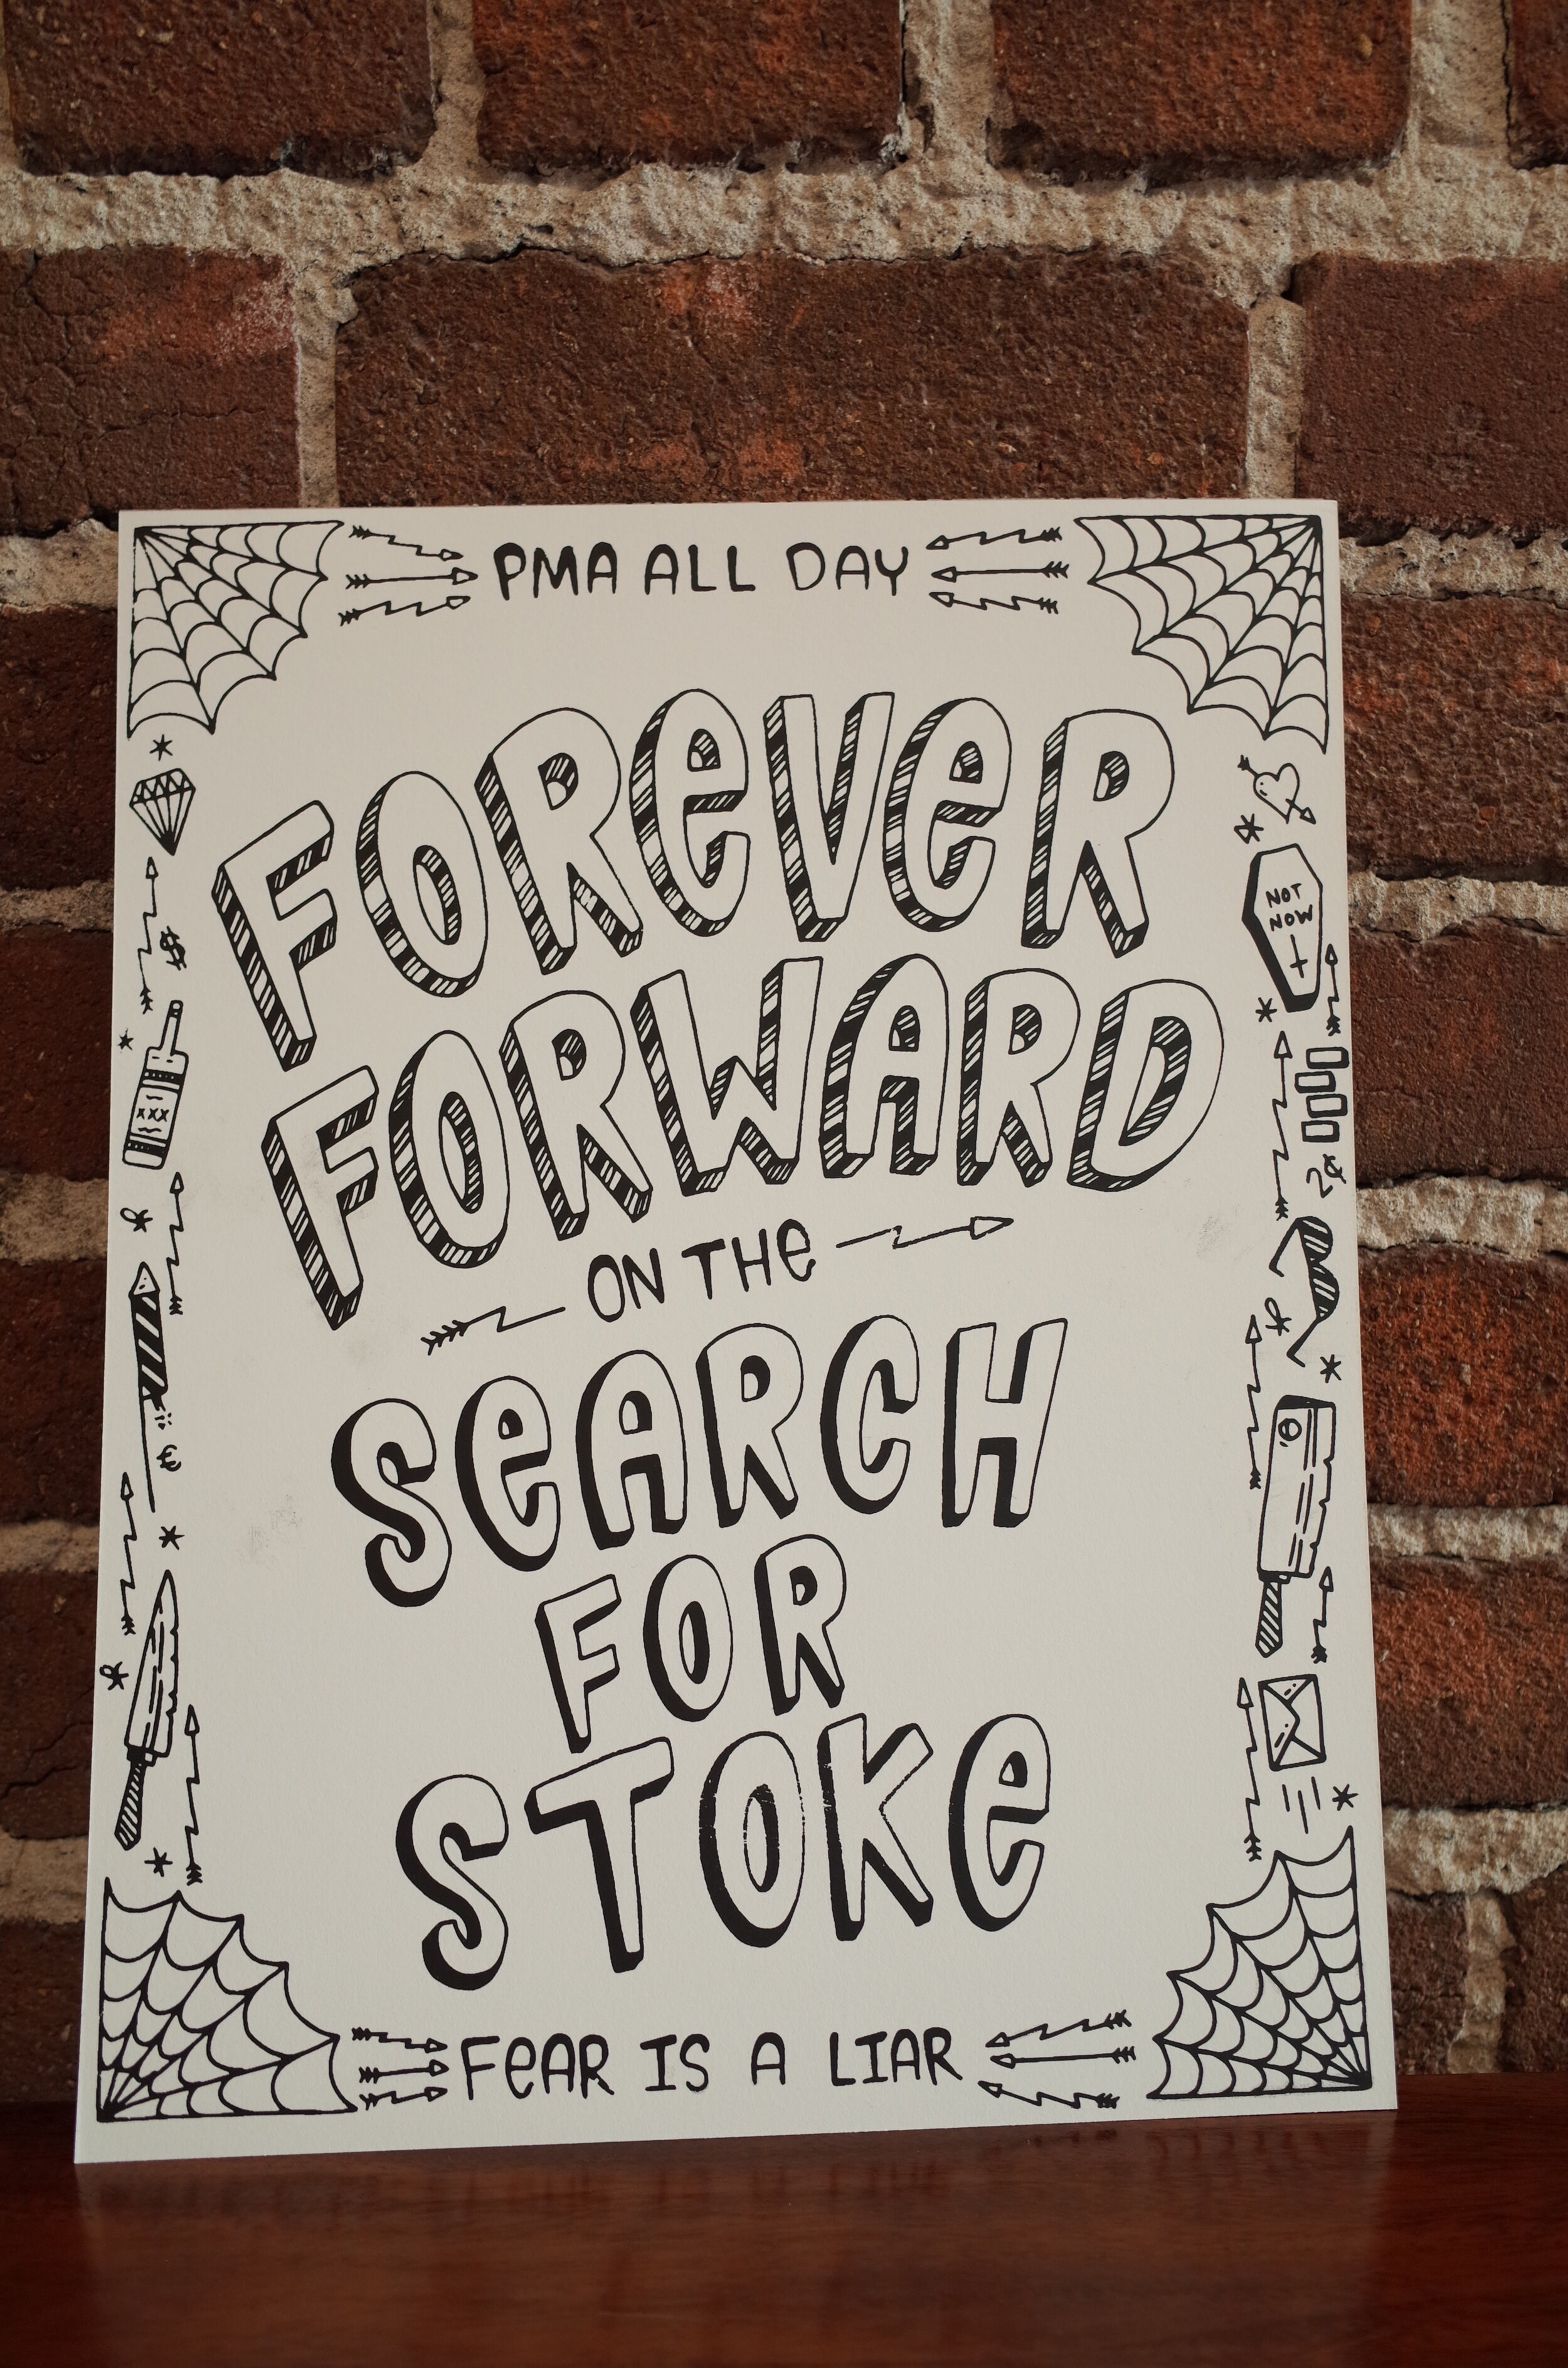 PMA ALL DAY
FOReVeR
FORWARD
ON THe
SeARCH
FOR
STOKe
FeAR IS A LIAR
$
XXX
NOT
NOW